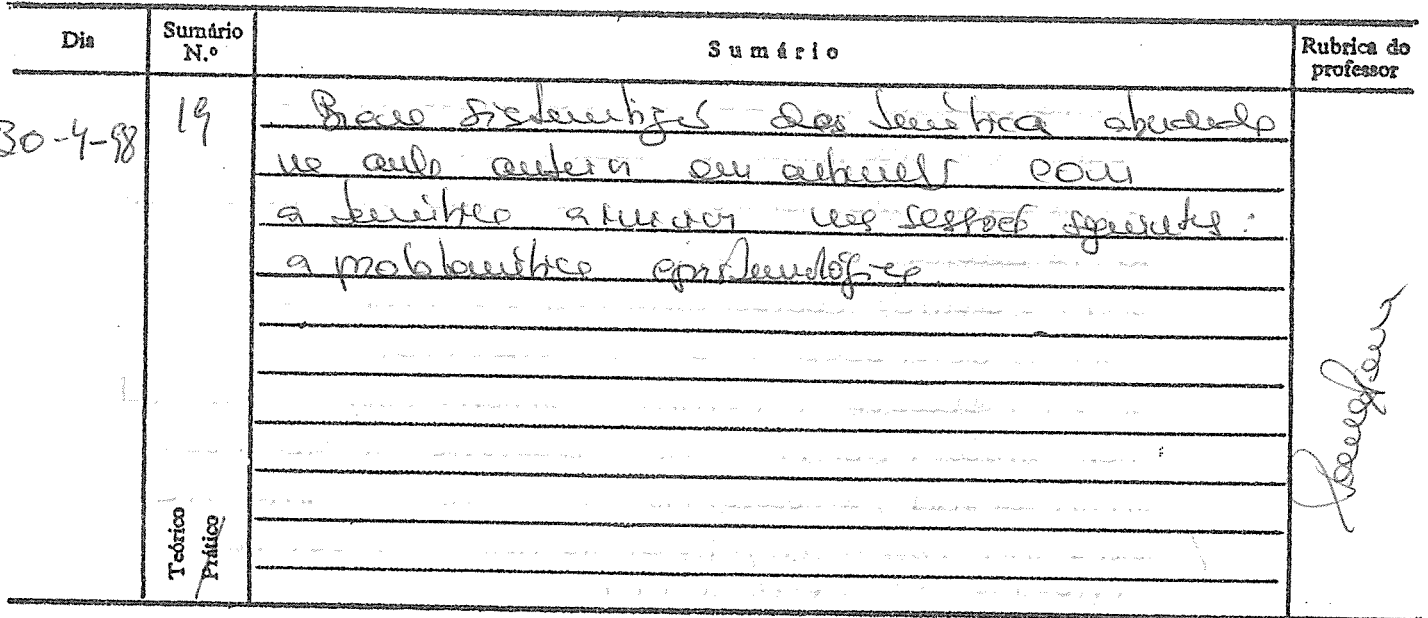 Dia
Sumário N.º
Sumário
Rubrica do professor
30-4-98
19
Breve sistematização das temática abordada
na aula anterior em articulação com
a temática a iniciar nas sessões seguintes:
a problemática epistemológica
Teórico
Prático